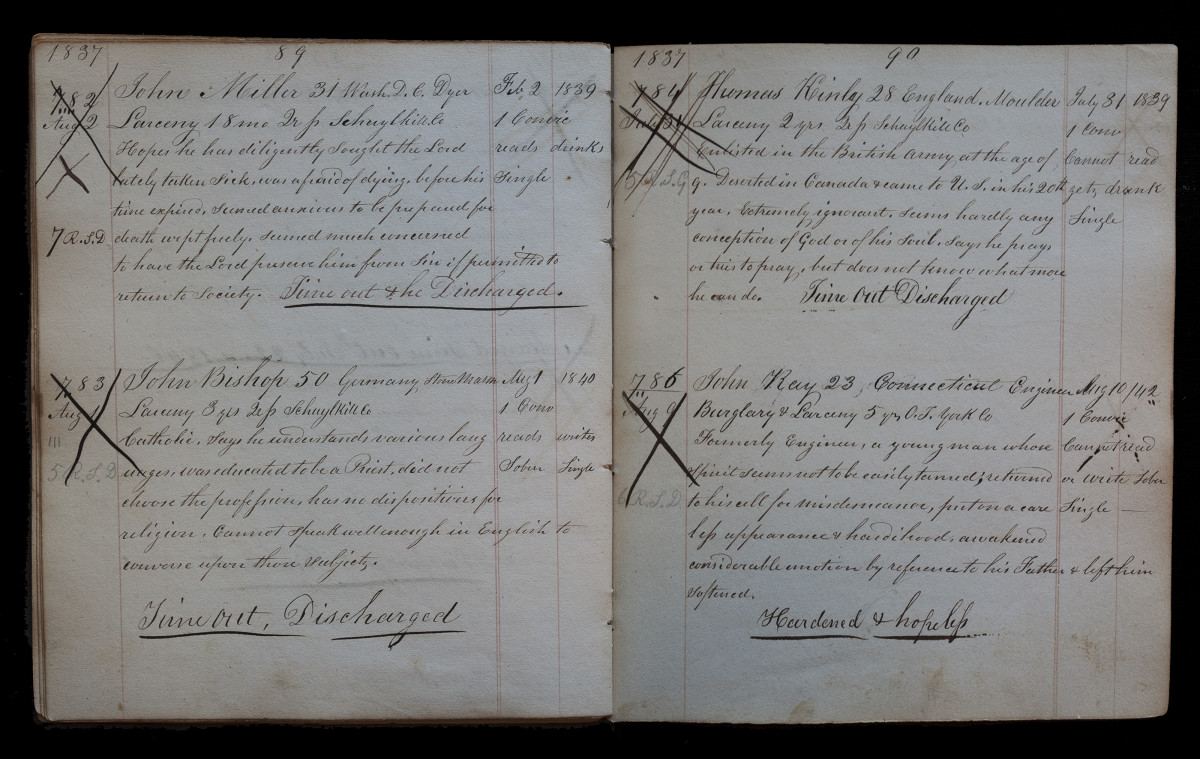 1837 89
782 John Miller 31 Wash. D. C. Dyer Feb 2 1839
Aug 2 Larceny 18 mo Schuylkill Co 1 Convic
Hopes he has diligently sought the Lord reads drinks
lately taken Sick, was afraid of dying, before his Single
time expired, seemed anxious to be prepared for
7 R.S.D death wept freely. Seemed much concerned
to have the Lord preserve him from Sin if permitted to
return to Society. Time out & he Discharged.
783 John Bishop 50 Germany, Stone Mason Aug 1 1840
Aug 1 Larceny 3 yrs Schuylkill Co 1 Conv
Catholic. Says he understands various lang reads writes
5 R.S.D uages, was educated to be a Priest, did not Sober Single
choose the profession, has no dispositions for
religion. Cannot speak well enough in English to
converse upon those subjects.
Time out, Discharged
1837 90
784 Thomas Kinly 28 England. Moulder July 31 1839
July 31 Larceny 2 yrs Schuylkill Co 1 Conv
Enlisted in the British Army, at the age of Cannot read
9. Deserted in Canada & came to U.S. in his 20th gets drunk
year. Extremely ignorant. Seems hardly any Single
conception of God or of his Soul. Says he prays
or tries to pray, but does not know what more
he can do. Time Out Discharged
786 John Kay 23, Connecticut Engineer Aug 10/42
Aug 9 Burglary & Larceny 5 yrs O.T. York Co 1 Convic
Formerly Engineer, a young man whose Cannot read
spirit seems not to be easily tamed; returned or write Sober
6 R.S.D to his cell for misdemeanor, put on a care Single
less appearance & hardihood. awakened
considerable emotion by reference to his Father & left him
softened.
Hardened & hopeless